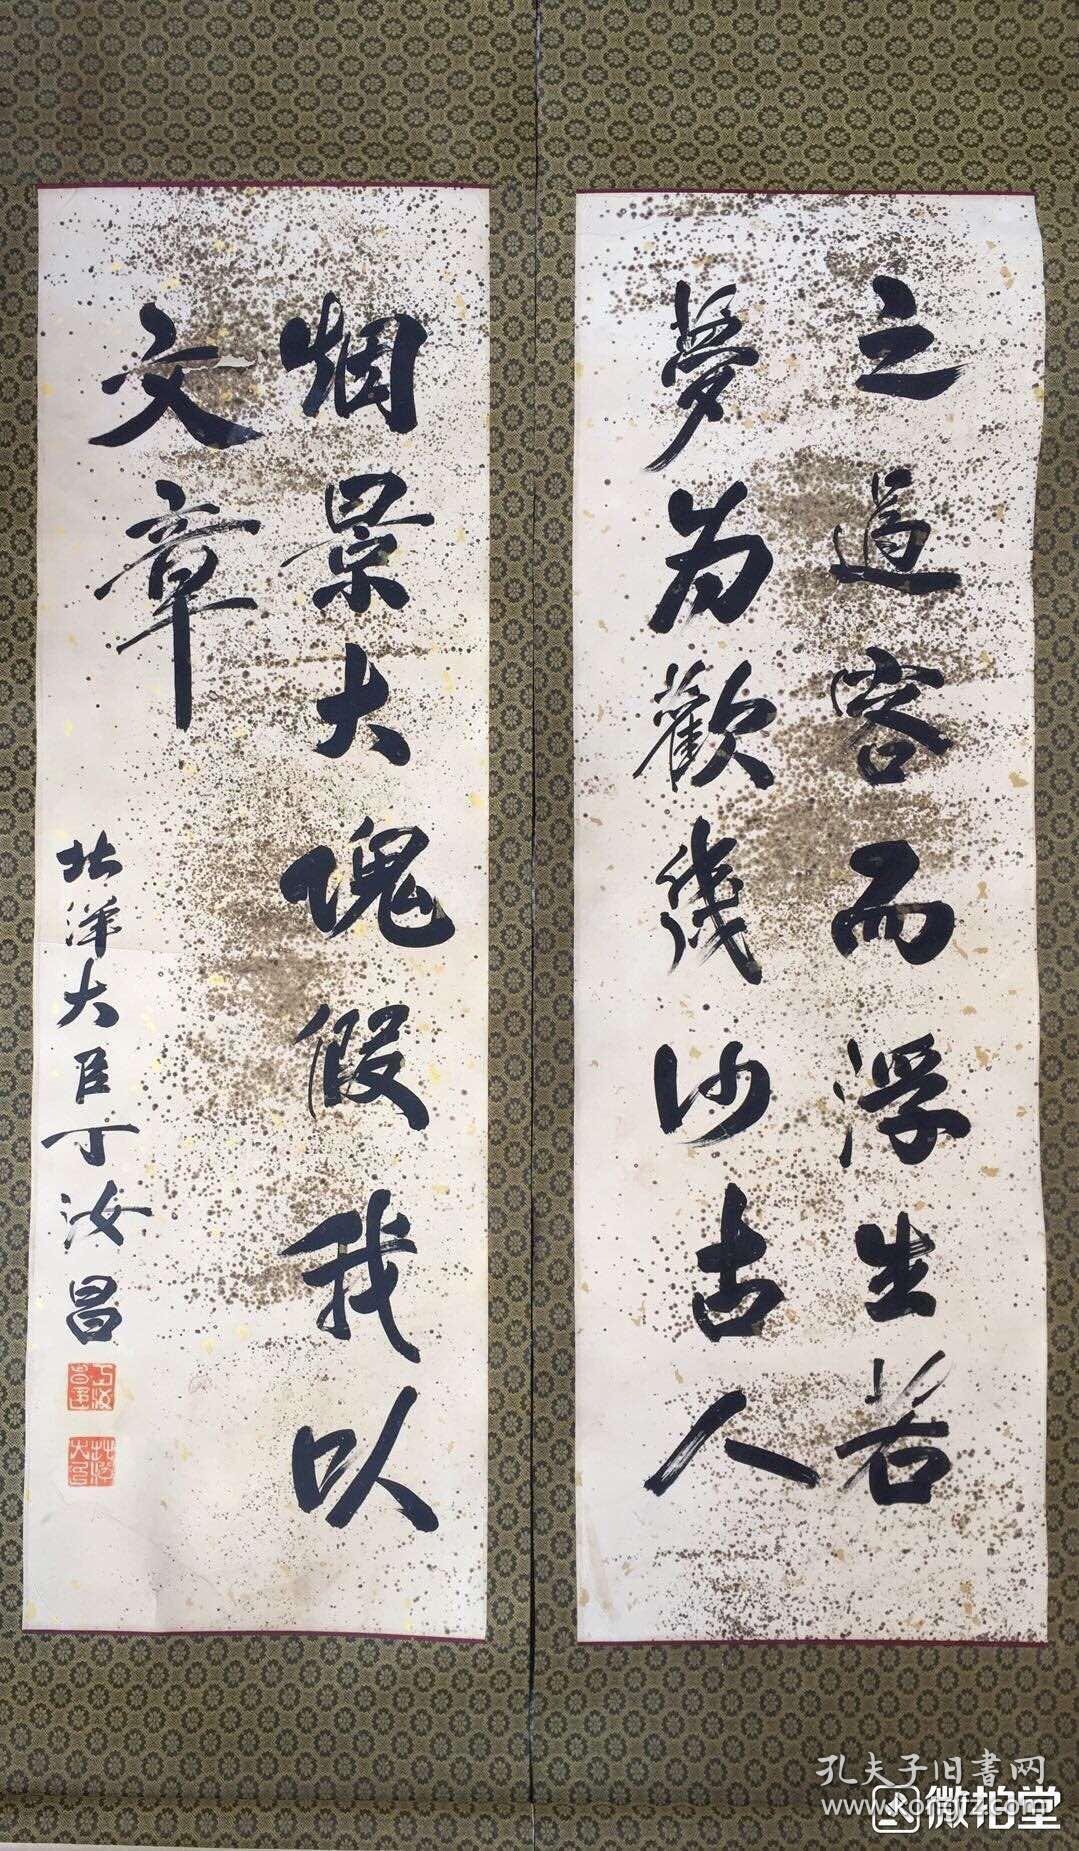 之過客而浮生若
夢为歡幾何古人
烟景大塊假我以
文章
北洋大臣丁汝昌
孔夫子旧書网
微拍堂